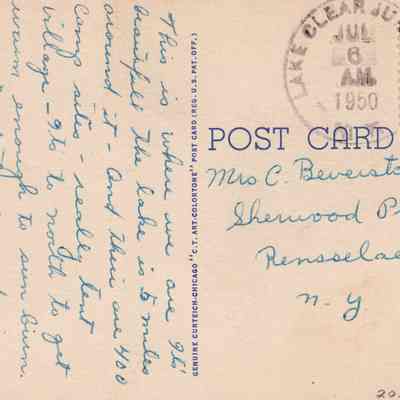 This is where we are. It's
beautiful! The lake is 5 miles
around it - and there are 400
camp sites - really tent
village - It's to north to get
warm enough to sun burn.
GENUINE CURTEICH-CHICAGO "C.T. ART-COLORTONE" POST CARD (REG. U.S. PAT. OFF.)
LAKE CLEAR JU
JUL
6
AM
1950
POST CARD
Mrs C. Beversto
Sherwood P
Rensselae
N. Y.
20